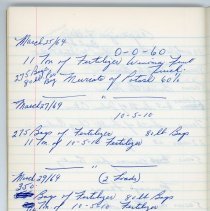 March 25/69
0-0-60
11 Tn of Fertilizer
275 Bag
80 lb Bag Muriate of Potash 60%
"
March 27/69
10-5-10
275 Bags of Fertilizer 80 lb Bags
11 Tn of 10-5-10 Fertilizer
"
March 29/69 (2 Loads)
350
Bags of Fertilizer 80 lb Bags
Tn of 10-5-10 Fertilizer